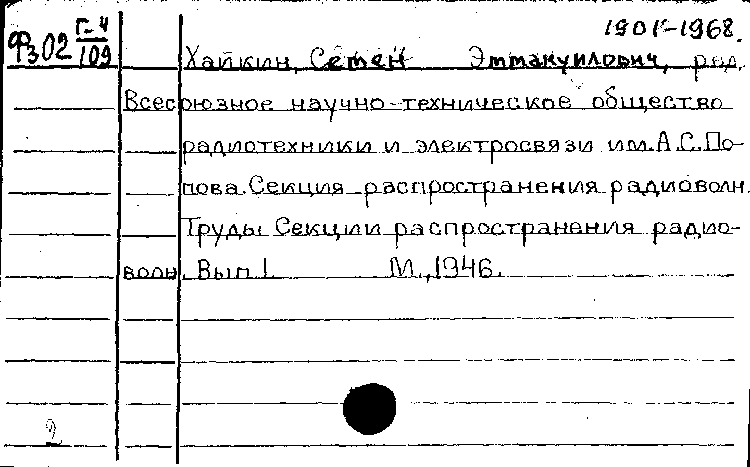 Фз02 Г-4/109
1901-1968.
Хайкин, Семен Эммануилович, ред.
Всесоюзное научно-техническое общество
радиотехники и электросвязи им. А.С. По-
пова. Секция распространения радиоволн.
Труды Секции распространения радио-
волн. Вып. 1. М., 1946.